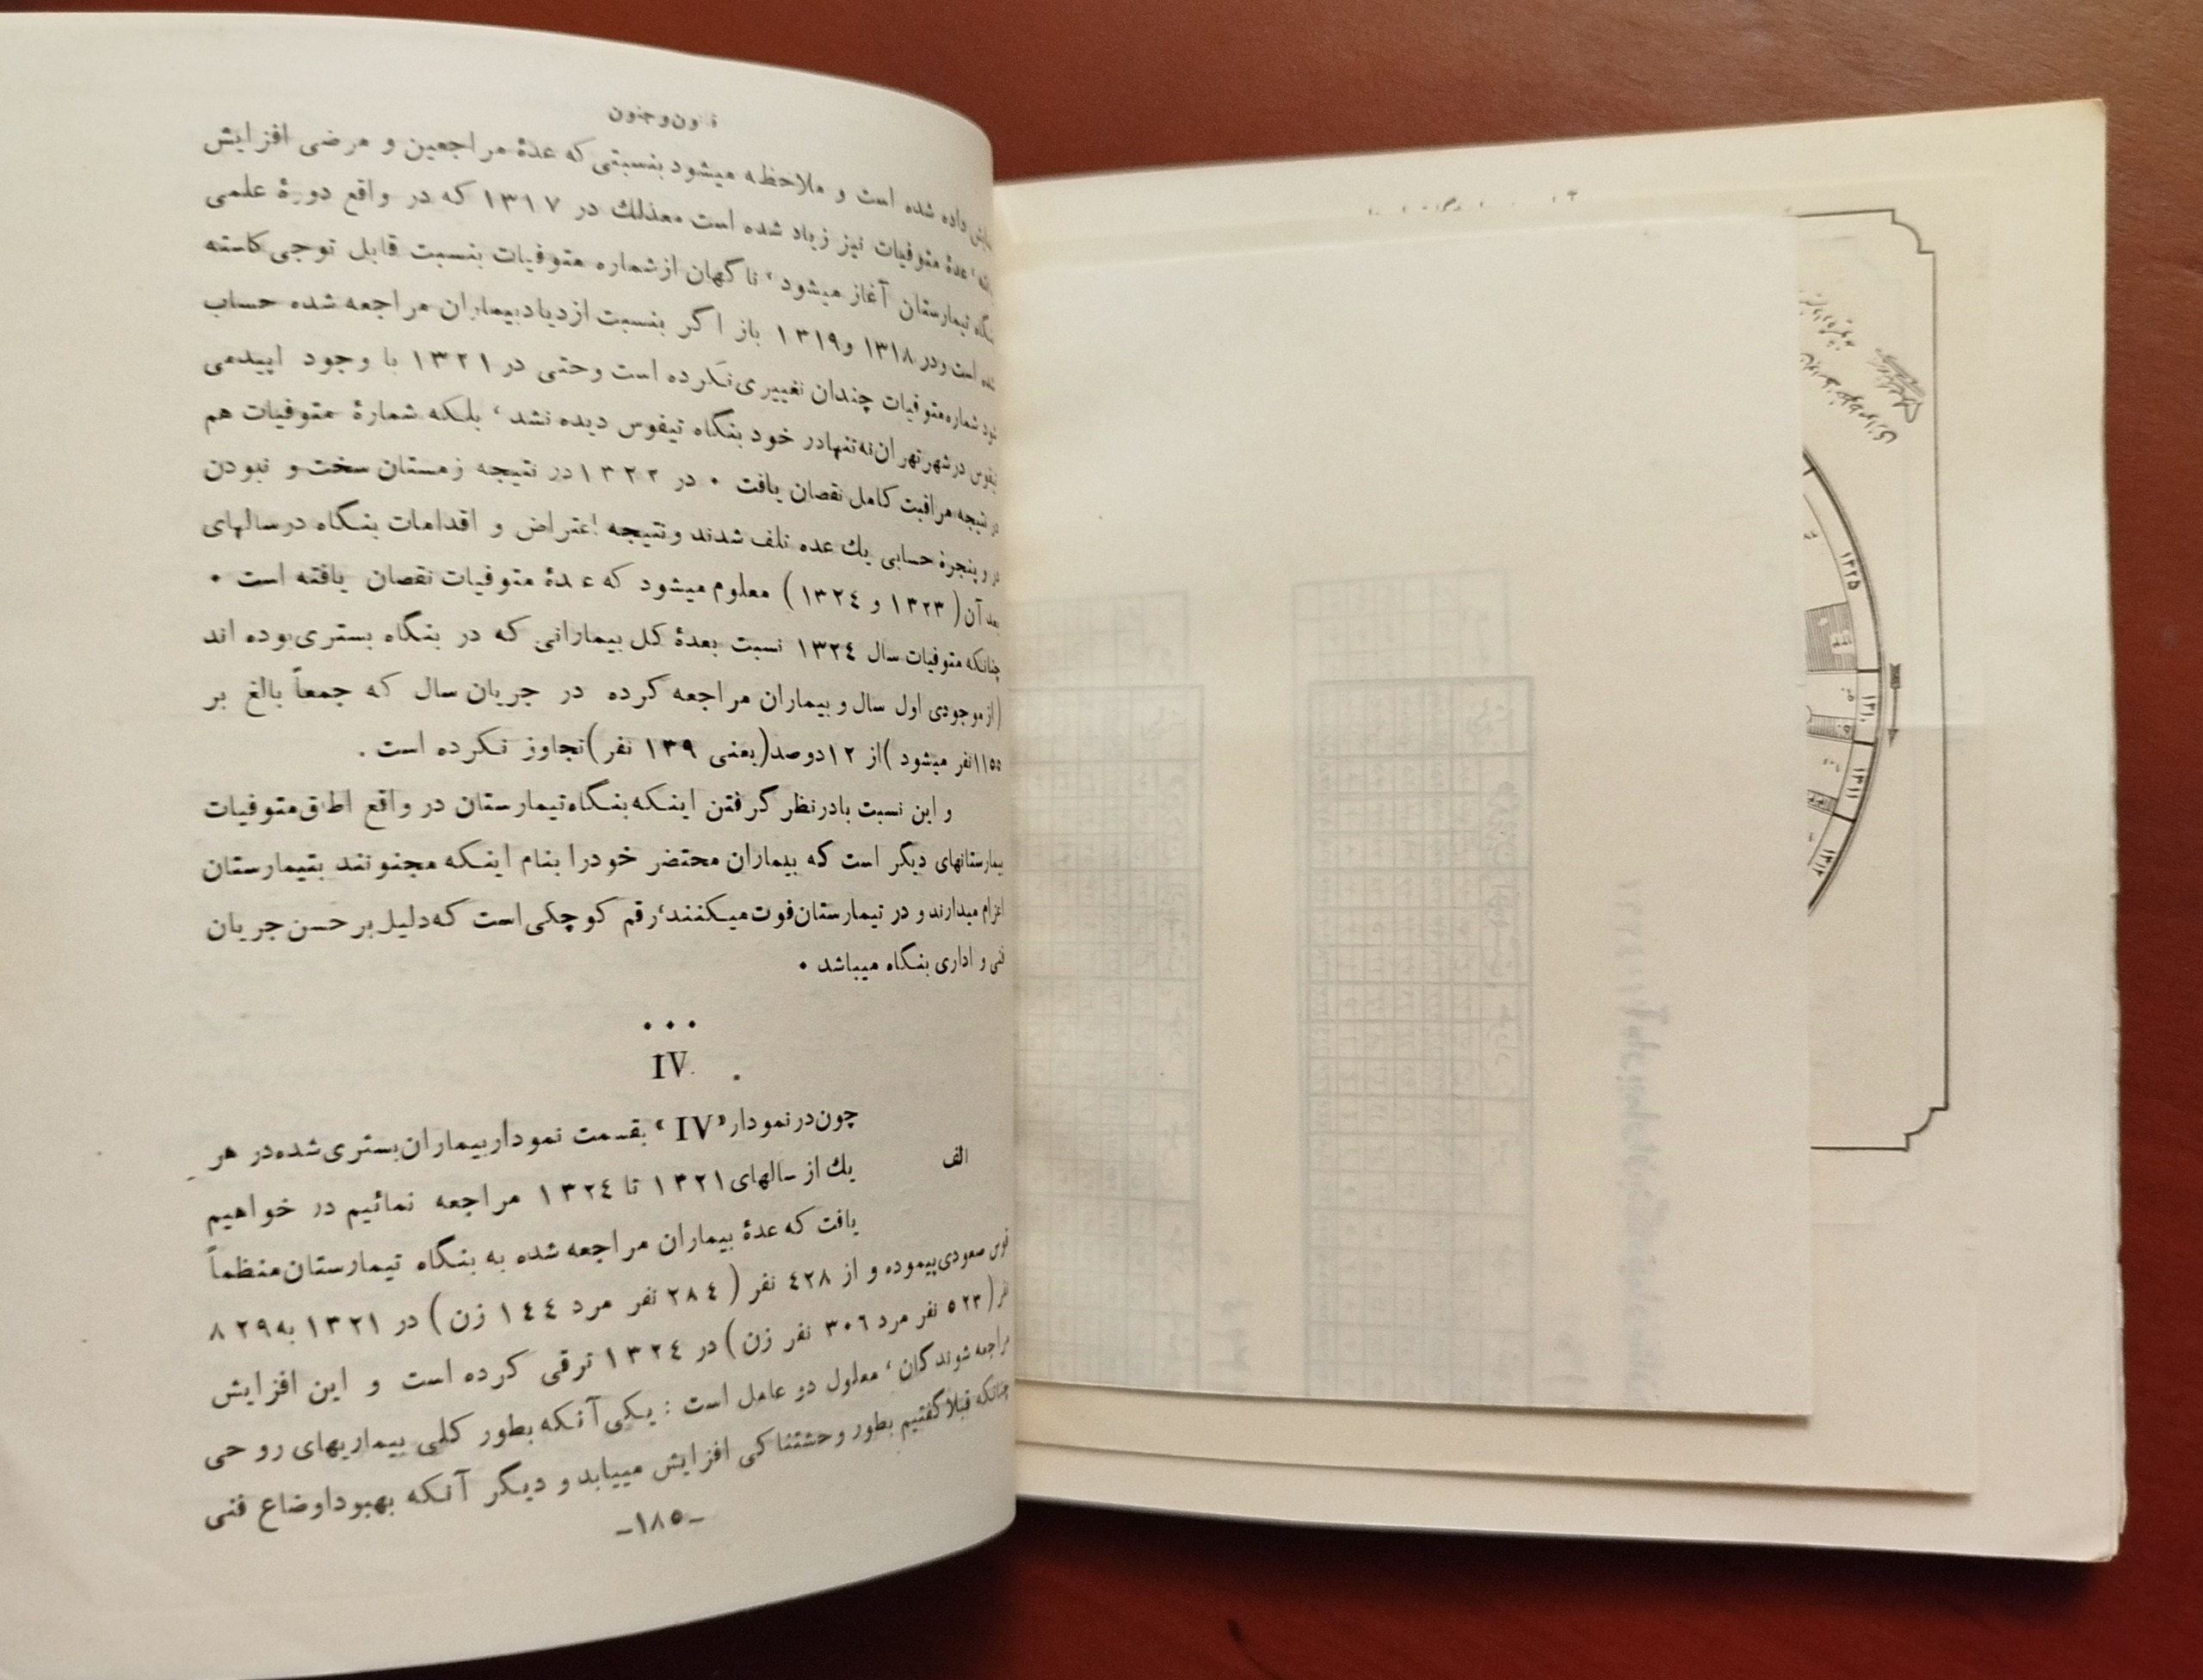 قانون و جنون
نمایش داده شده است و ملاحظه میشود بنسبتی که عدهٔ مراجعین و مرضی افزایش
یافته، عدهٔ متوفیات نیز زیاد شده است معذلك در ۱۳۱۷ که در واقع دورهٔ علمی
بنگاه تیمارستان آغاز میشود، ناگهان از شماره متوفیات بنسبت قابل توجی کاسته
شده است و در ۱۳۱۸ و ۱۳۱۹ باز اگر بنسبت ازدیاد بیماران مراجعه شده حساب
شود شماره متوفیات چندان تغییری نکرده است و حتی در ۱۳۲۱ با وجود اپیدمی
تیفوس در شهر تهران نه تنها در خود بنگاه تیفوس دیده نشد، بلکه شمارهٔ متوفیات هم
در نتیجه مراقبت کامل نقصان یافت ۰ در ۱۳۲۲ در نتیجه زمستان سخت و نبودن
در و پنجرهٔ حسابی یك عده تلف شدند و نتیجه اعتراض و اقدامات بنگاه در سالهای
بعد آن (۱۳۲۳ و ۱۳۲٤) معلوم میشود که عدهٔ متوفیات نقصان یافته است ۰
چنانکه متوفیات سال ۱۳۲٤ نسبت بعدهٔ کل بیمارانی که در بنگاه بستری بوده اند
(از موجودی اول سال و بیماران مراجعه کرده در جریان سال که جمعاً بالغ بر
۱۱۵۵ نفر میشود) از ۱۲ دوصد (یعنی ۱۳۹ نفر) تجاوز نکرده است .
و این نسبت بادر نظر گرفتن اینکه بنگاه تیمارستان در واقع اطاق متوفیات
بیمارستانهای دیگر است که بیماران محتضر خودرا بنام اینکه مجنونند بتیمارستان
اعزام میدارند و در تیمارستان فوت میکنند، رقم کوچکی است که دلیل بر حسن جریان
فنی و اداری بنگاه میباشد ۰
• • •
IV
چون در نمودار «IV» بقسمت نمودار بیماران بستری شده در هر
الف
یك از سالهای ۱۳۲۱ تا ۱۳۲٤ مراجعه نمائیم در خواهیم
یافت که عدهٔ بیماران مراجعه شده به بنگاه تیمارستان منظماً
قوس صعودی پیموده و از ٤۲۸ نفر (۲۸٤ نفر مرد ۱٤٤ زن) در ۱۳۲۱ به ۸۲۹
نفر (۵۲۳ نفر مرد ۳۰٦ نفر زن) در ۱۳۲٤ ترقی کرده است و این افزایش
مراجعه شوندگان، معلول دو عامل است : یکی آنکه بطور کلی بیماریهای روحی
چنانکه قبلا گفتیم بطور وحشتناکی افزایش مییابد و دیگر آنکه بهبود اوضاع فنی
-۱۸۵-
۱۳۲۵
۱۳۱۰
۱۳۱۱
۱۳۱۲